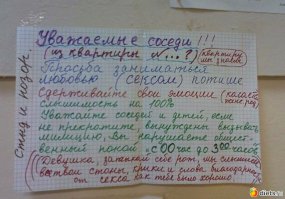 Уважаемые соседи!!!
(из квартиры № ...?) (квартиру мы знаем
Просьба заниматься
любовью (сексом) потише
Сдерживайте свои эмоции (касается
слышимость на 100%
Уважайте соседей и детей, если
не прекратите, вынуждены вызывать
милицию, Вы нарушаете общест-
венный покой с 00 час до 3 00 часов
((Девушка, заткни себе рот, мы слышим
твои стоны, крики и слова благодарности
от секса как тебе было хорошо
Стыд и позор.
diets.ru